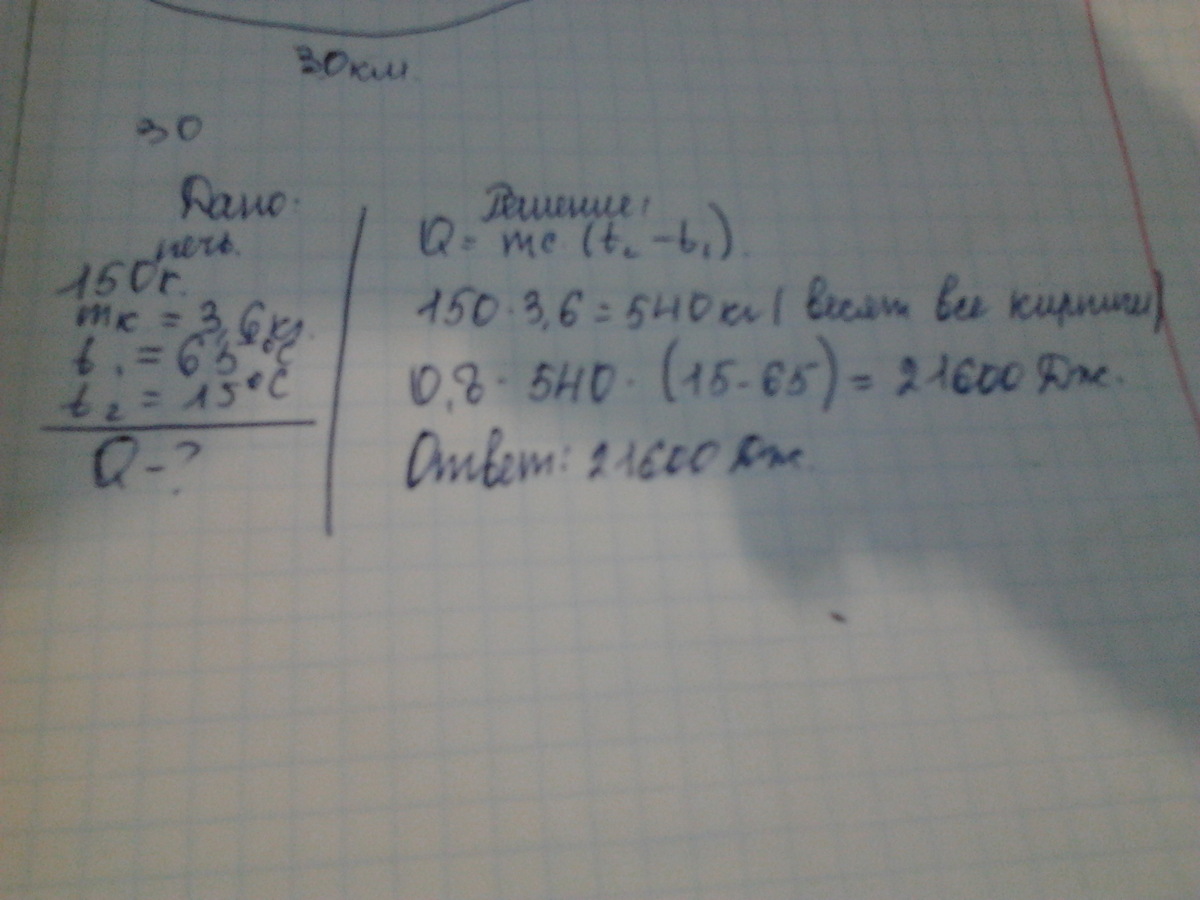 30км.
30
Дано:
печь.
150к.
mк = 3,6кг.
t₁ = 65°C
t₂ = 15°C
Q - ?
Решение:
Q = mc (t₂ - t₁).
150 · 3,6 = 540 кг ( весят все кирпичи)
0,8 · 540 · (15 - 65) = 21600 Дж.
Ответ: 21600 Дж.